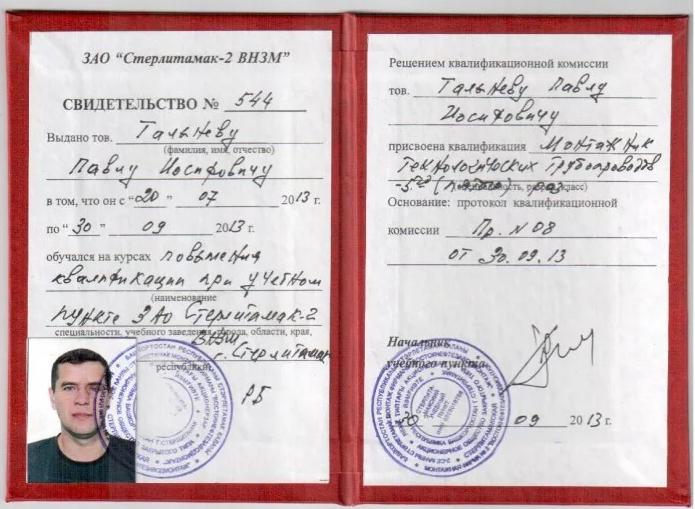 ЗАО “Стерлитамак-2 ВНЗМ”
СВИДЕТЕЛЬСТВО № 544
Выдано тов. Талыневу
(фамилия, имя, отчество)
Павлу Иосифовичу
в том, что он с “20” 07 2013 г.
по “30” 09 2013 г.
обучался на курсах повышения
квалификации при учетном
(наименование
пункте ЗАО Стерлитамак-2
специальности, учебного заведения, города, области, края,
ВНЗМ г. Стерлитамак
республики)
РБ
Решением квалификационной комиссии
тов. Талыневу Павлу
Иосифовичу
присвоена квалификация Монтажник
технологических трубопроводов
-5го (пятого) раз.
Основание: протокол квалификационной
комиссии Пр. N 08
от 30.09.13
Начальник
учебного пункта
09 2013 г.